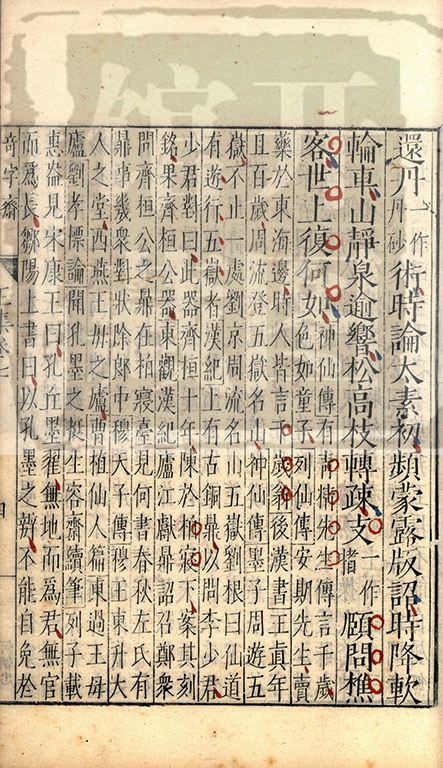 還丹一作丹砂術時論太素初頻蒙露版詔時降軟
輪車山靜泉逾響松高枝轉疎支一作頤問樵
客世上復何如神仙傳有先生傳言千歲
色如童子列仙傳安期先生賣
藥於東海邊時人皆言千歲翁後漢書王真年
且百歲周流登五嶽名山神仙傳墨子周遊五
嶽不止一處劉京周流名山五嶽劉根曰仙道
有遊行五嶽者漢紀上有古銅鼎以問李少君
少君對曰此器齊桓十年陳於柏寢下案其刻
銘果齊桓公器東觀漢紀廬江獻鼎詔召鄭衆
問齊桓公之鼎在柏寢臺見何書春秋左氏有
鼎事幾衆對狀除郎中穆天子傳穆王東升大
人之堂西燕王母之廬曹植仙人篇東過王母
廬劉孝標論聞孔墨之挺生容齋續筆列子載
惠盎見宋康王曰孔丘墨翟無地而爲君無官
而爲長鄒陽上書曰以孔墨之辨不能自免於
奇字齋
四